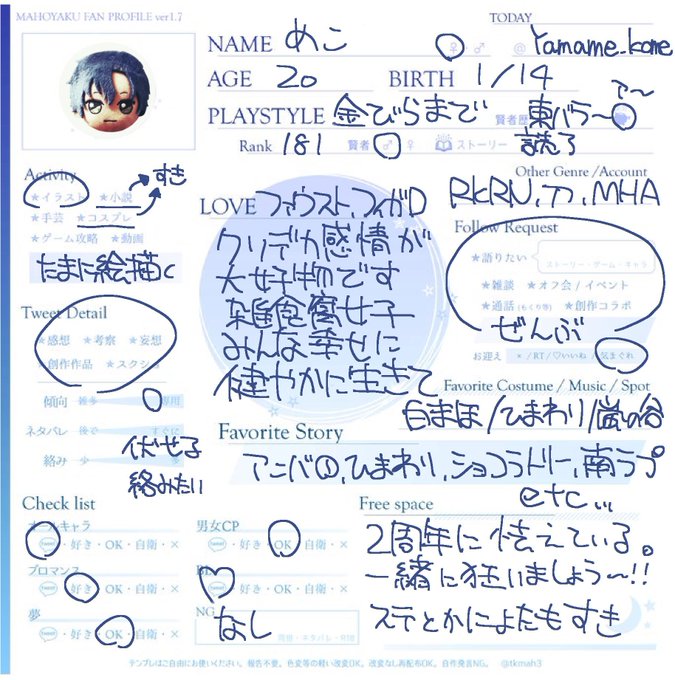 MAHOYAKU FAN PROFILE ver1.7
TODAY
NAME めこ ♀・♂ @ Yamame_kome
AGE 20 BIRTH 1/14
PLAYSTYLE 金びらまで 賢者歴 東バラ〜 ア〜
Rank 181 賢者 ♂ ♀ ストーリー 読了
Activity
★イラスト ★小説 すき
★手芸 ★コスプレ
★ゲーム攻略 ★動画
たまに絵描く
LOVE ファウスト、フィガロ
クソデカ感情が
大好物です
雑食腐女子
みんな幸せに
健やかに生きて
Other Genre /Account
RkRN、カ、MHA
Follow Request
★語りたい ストーリー・ゲーム・キャラ
★雑談 ★オフ会 / イベント
★通話 (もくり等) ★創作コラボ
ぜんぶ
お迎え × / RT / ♡いいね / 気まぐれ
Tweet Detail
★感想 ★考察 ★妄想
★創作作品 ★スクショ
傾向 雑多 専用
ネタバレ 後で すぐに
伏せる
絡み 少 多
絡みたい
Favorite Costume / Music / Spot
白まほ/ひまわり/嵐の谷
Favorite Story
アニバ①、ひまわり、ショコラドリー、南ラプ
etc...
Check list
オールキャラ
tweet・好き・OK・自衛・×
ブロマンス
tweet・好き・OK・自衛・×
夢
tweet・好き・OK・自衛・×
男女CP
tweet・好き・OK・自衛・×
BL
・好き・OK・自衛・×
NG
なし
Free space
2周年に怯えている。
一緒に狂いましょう〜!!
ステとかによたもすき
テンプレはご自由にお使いください。報告不要。色変等の軽い改変OK。改変なし再配布OK。自作発言NG。 @tkmah3